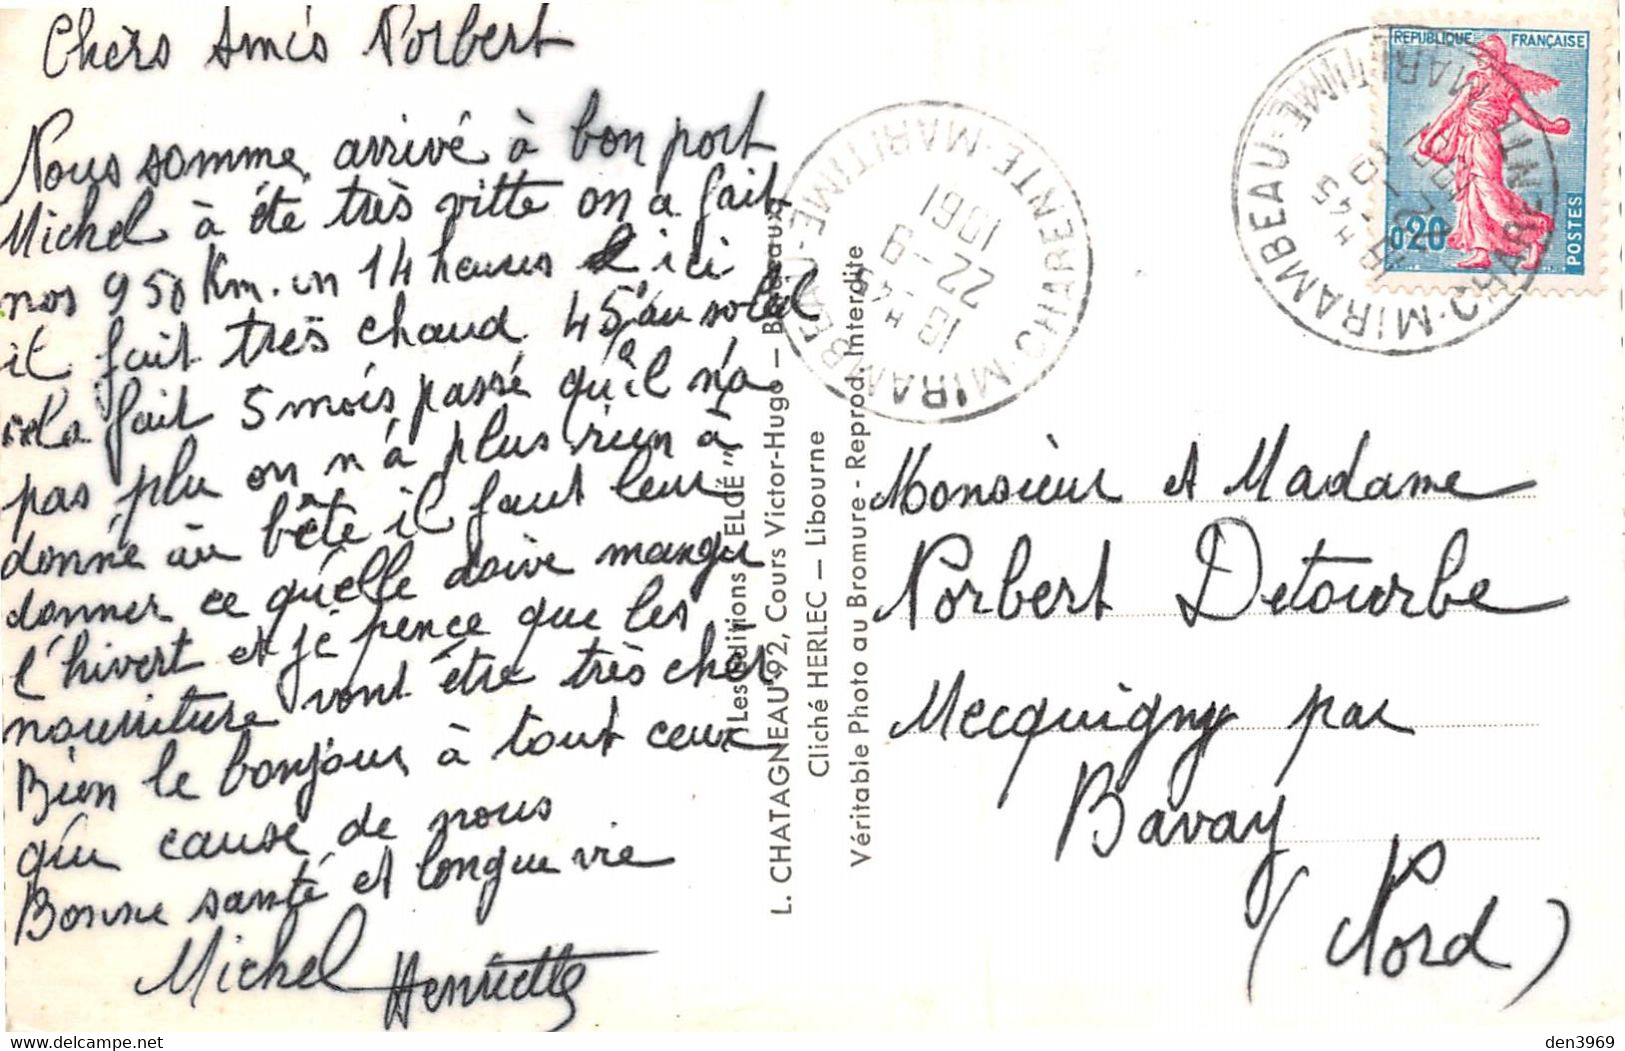 Chèrs Amis Norbert
Nous somme arrivé à bon port
Michel à éte très vitte on a fait
nos 950 Km. en 14 heures et ici
il fait très chaud 45° au soleil
cela fait 5 mois passé qu'il n'a
pas plu on n'á plus rien à
donné au bête il faut leur
donner ce qu'elle doive manger
l'hivert et je pence que les
nourriture vont être très cher
Bien le bonjour à tout ceux
qui cause de nous
Bonne santé et longue vie
Michel Henriette
Les Editions "ELGÉ"
L. CHATAGNEAU 92, Cours Victor-Hugo — Bordeaux
Cliché HERLEC — Libourne
Véritable Photo au Bromure - Reprod. Interdite
MIRAMBEAU
CHARENTE-MARITIME
18 H 45
22-8
1961
REPUBLIQUE FRANÇAISE
0,20
POSTES
MIRAMBEAU
CHARENTE-MARITIME
Monsieur et Madame
Norbert Detourbe
Mecquigny par
Bavay
(Nord)
den3969
delcampe.net